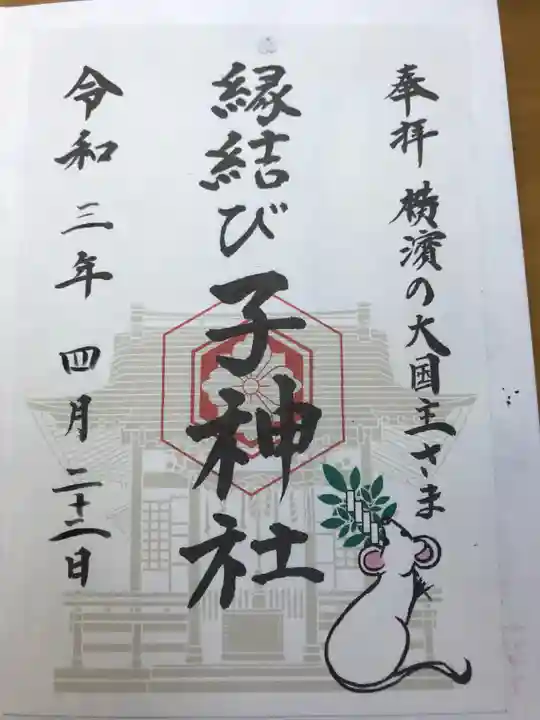 奉拝 横濱の大国主さま
縁結び子神社
令和三年四月二十二日